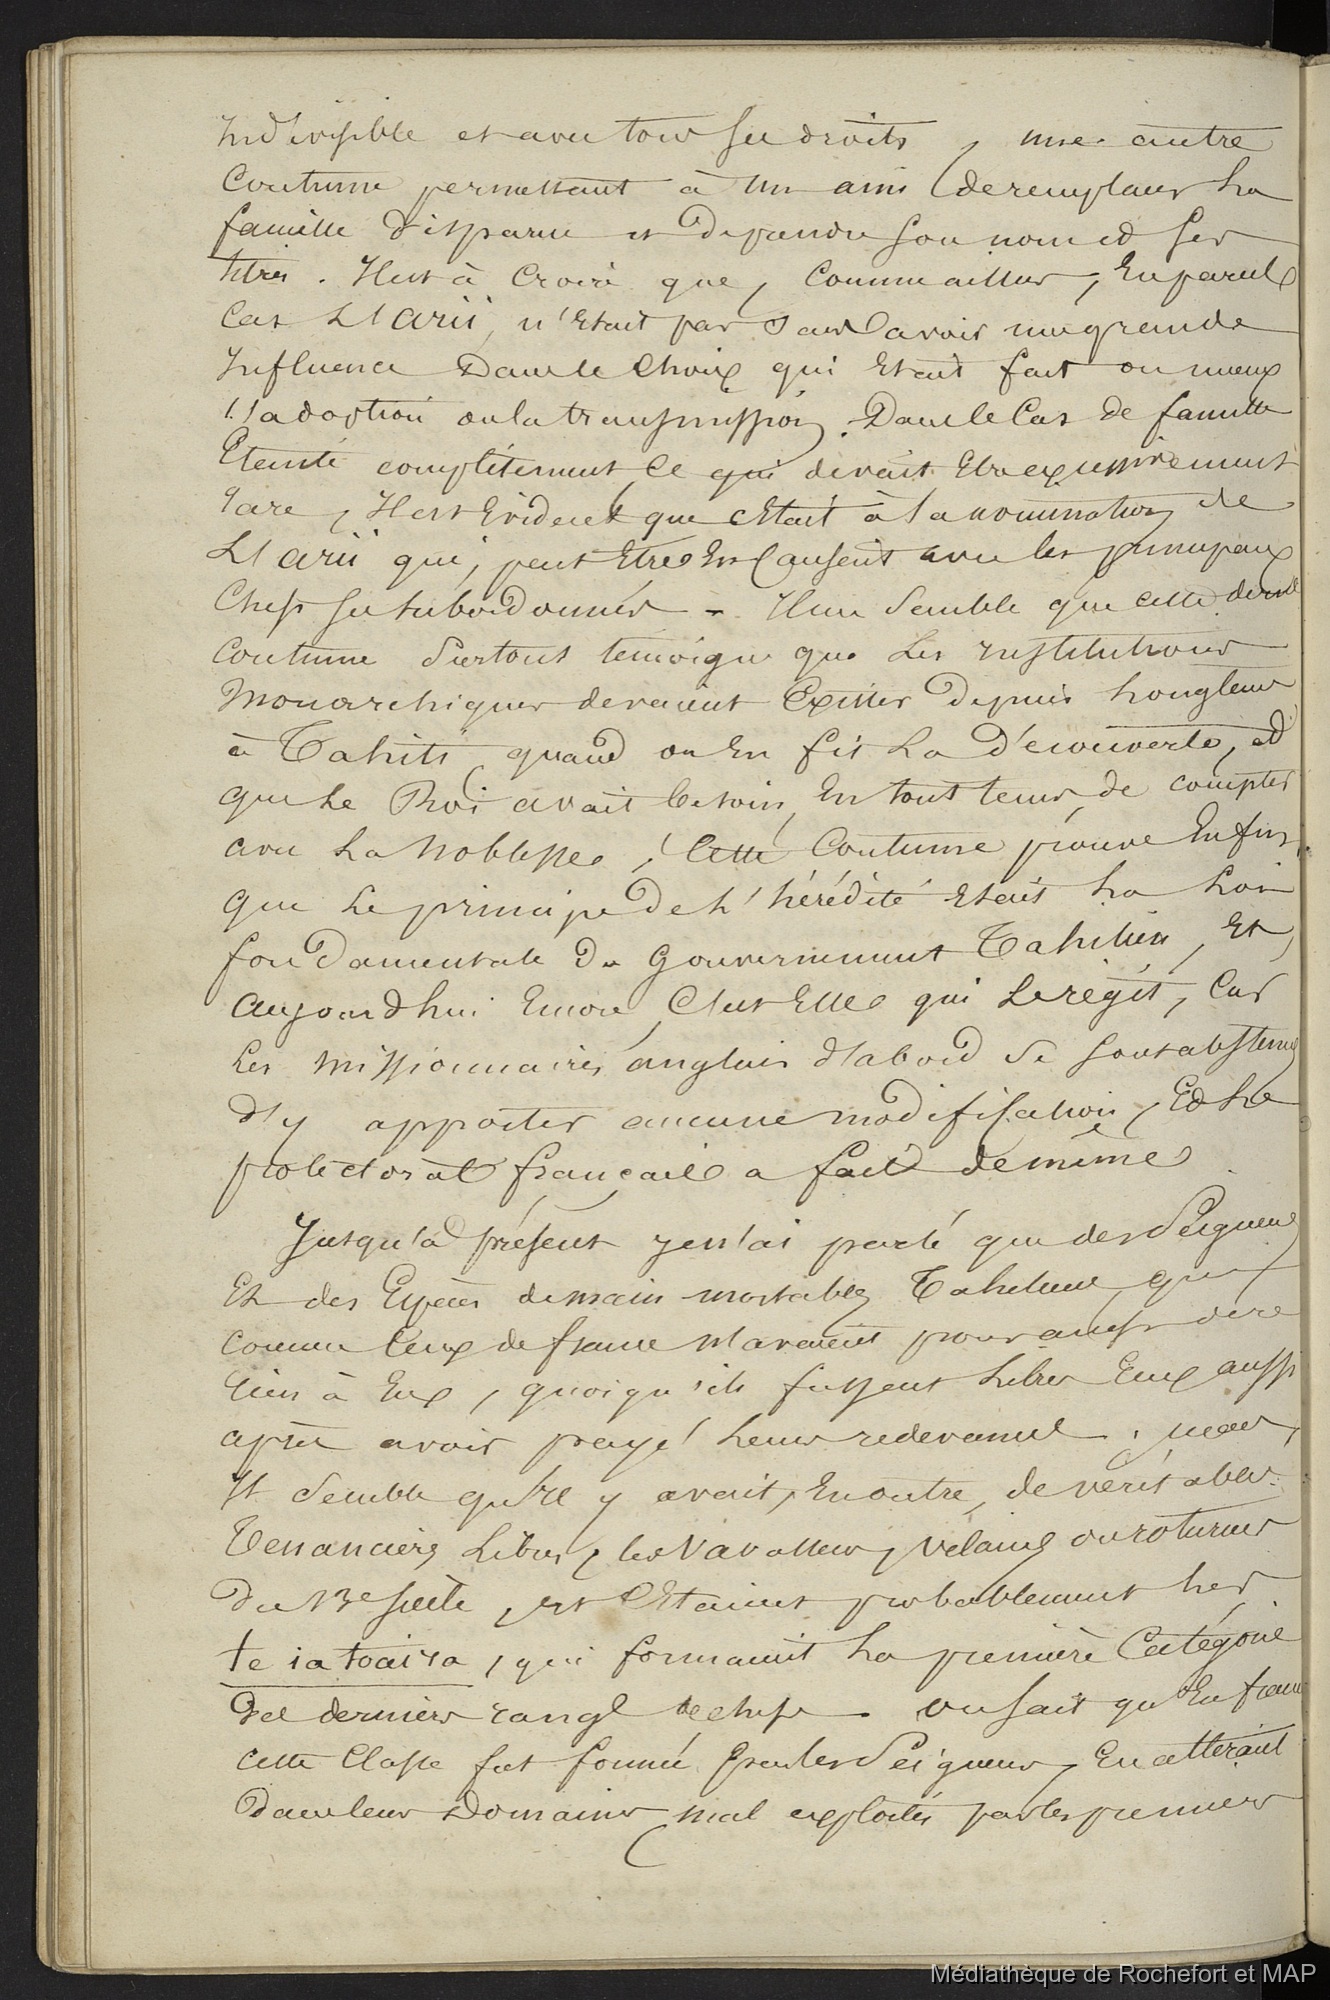 Indivisible et avec tous ses droits, une autre
Coutume permettant à un ami de remplacer la
famille disparue et de prendre son nom et ses
titres. Il est à croire que, comme ailleurs, En pareil
Cas L'arii, n'Etait pas sans avoir une grande
Influence Dans le Choix qui Etait fait ou mieux
l'adoption ou la transmission. Dans le Cas de famille
Eteinte complètement, Ce qui devait Etre excessivement
rare, Il est Evident que c'Etait à la nomination de
L'arii qui, peut Etre En Causait avec les principaux
Chefs ses subordonnés - Il me Semble que cette
coutume Surtout témoigne que Les Institutions
Monarchiques devaient Exister Depuis longtems
à Tahiti, quand on En fit La Découverte, et
que Le Roi avait besoin, En tout tems, de compter
avec La Noblesse, Cette Coutume prouve Enfin,
que Le principe De L'hérédité Etait La Loi
fondamentale Du Gouvernement Tahitien, Et,
aujourd'hui Encore, C'est Elle qui Le régit, Car
Les Missionnaires anglais d'abord Se Sont abstenus
d'y apporter aucune modification, Et Le
protectorat français a fait de même.
Jusqu'à présent je n'ai parlé que des Seigneurs
Et des Espèces de main mortables Tahitiens, qui
comme Ceux de france N'avaient pour ainsi dire
rien à Eux, quoiqu'ils fussent Libres Eux aussi
après avoir payé Leurs redevances. mais,
Il Semble qu'il y avait, En outre, de véritables
Tenanciers Libres, les Vavasseurs, Vilains ou roturiers
Du 13e Siècle, et C'Etaient probablement Les
te ia toaira, qui formaient La première Catégorie
Des derniers rangs de chefs. on sait qu'En france
cette Classe fut formée par les Seigneurs, En attirant
Dans leurs Domaines mal exploités par les premiers
Médiathèque de Rochefort et MAP